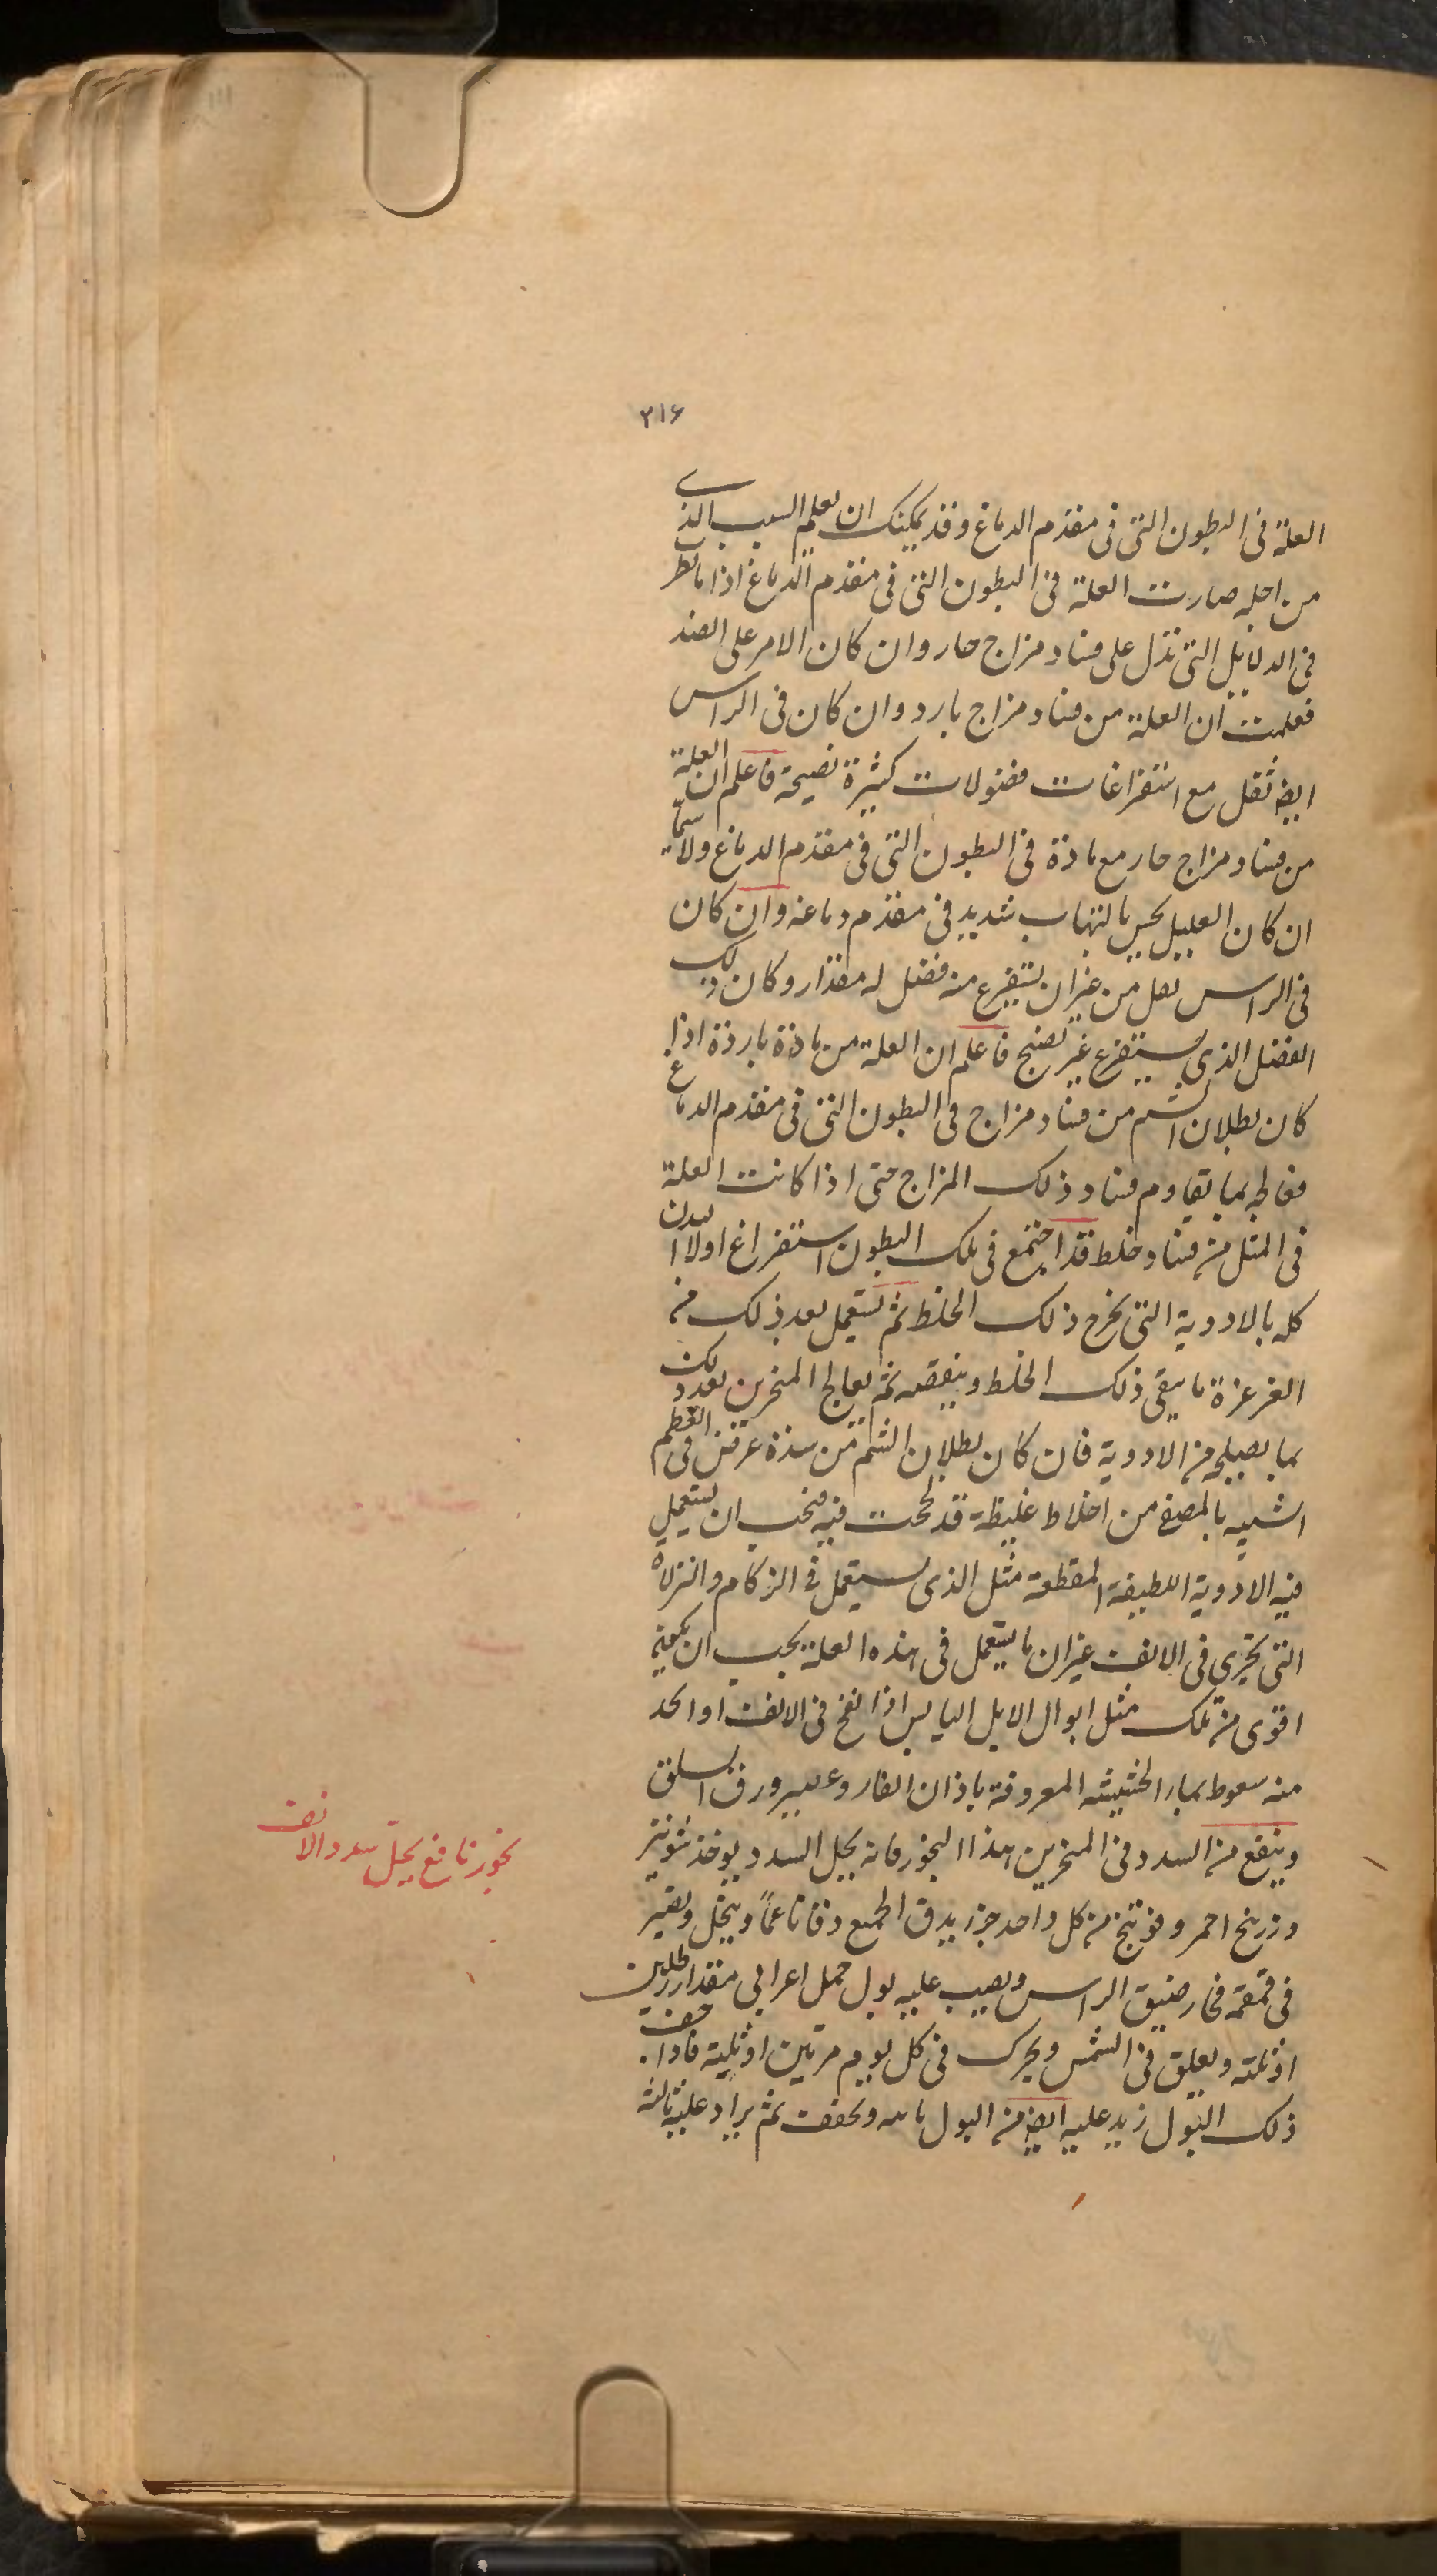 ٣١۶
العلة فى البطون التى فى مقدم الدماغ وقد يمكنك ان تعلم السبب الذى
من اجله صارت العلة فى البطون التى فى مقدم الدماغ اذا ما نظر
فى الدلايل التى تدل على فساد مزاج حار وان كان الامر على الضد
فعلمت ان العلة من فساد مزاج بارد وان كان فى الراس
ايضا ثقل مع استفراغات فضولات كثيرة نضيجة فاعلم ان العلة
من فساد مزاج حار مع مادة فى البطون التى فى مقدم الدماغ ولا سيما
ان كان العليل يحس بالتهاب شديد فى مقدم دماغه وان كان
فى الراس ثقل من غير ان يستفرغ منه فضل له مقدار وكان ذلك
الفضل الذى يستفرغ غير نضيج فاعلم ان العلة من مادة باردة اذا
كان بطلان الشم من فساد مزاج فى البطون التى فى مقدم الدماغ
فعالجه بما يقاوم فساد ذلك المزاج حتى اذا كانت العلة
فى المثل من فساد خلط قد اجتمع فى تلك البطون استفراغ اولا البدن
كله بالادوية التى تخرج ذلك الخلط ثم تستعمل بعد ذلك من
الغرغرة ما ينقى ذلك الخلط وينقصه ثم يعالج المنخرين بعد ذلك
بما يصلح من الادوية فان كان بطلان الشم من سدة عرضت فى العظم
الشبيه بالمصفى من اخلاط غليظة قد لحجت فيه فيجب ان يستعمل
فيه الادوية اللطيفة المقطعة مثل الذى يستعمل فى الزكام والنزلات
التى تجرى فى الانف غير ان ما يستعمل فى هذه العلة يجب ان يكون
اقوى من تلك مثل ابوال الابل اليابس اذا نفخ فى الانف او اتخذ
منه سعوط بماء الحشيشة المعروفة باذان الفار وعصير ورق السلق
وينفع من السدد فى المنخرين هذا البخور فانه يحل السدد يوخذ شونيز
وزرنيخ احمر وفوتنج من كل واحد جزء يدق الجميع دقا ناعماً وينخل ويصير
فى قمقمة فخار ضيق الراس ويصب عليه بول جمل اعرابى مقدار رطلين
او ثلثة ويعلق فى الشمس ويحرك فى كل يوم مرتين او ثلثة فاذا جف
ذلك البول زيد عليه ايضا من البول ويجفف ثم يزاد عليه ثالثة
بخور نافع يحل سدد الانف